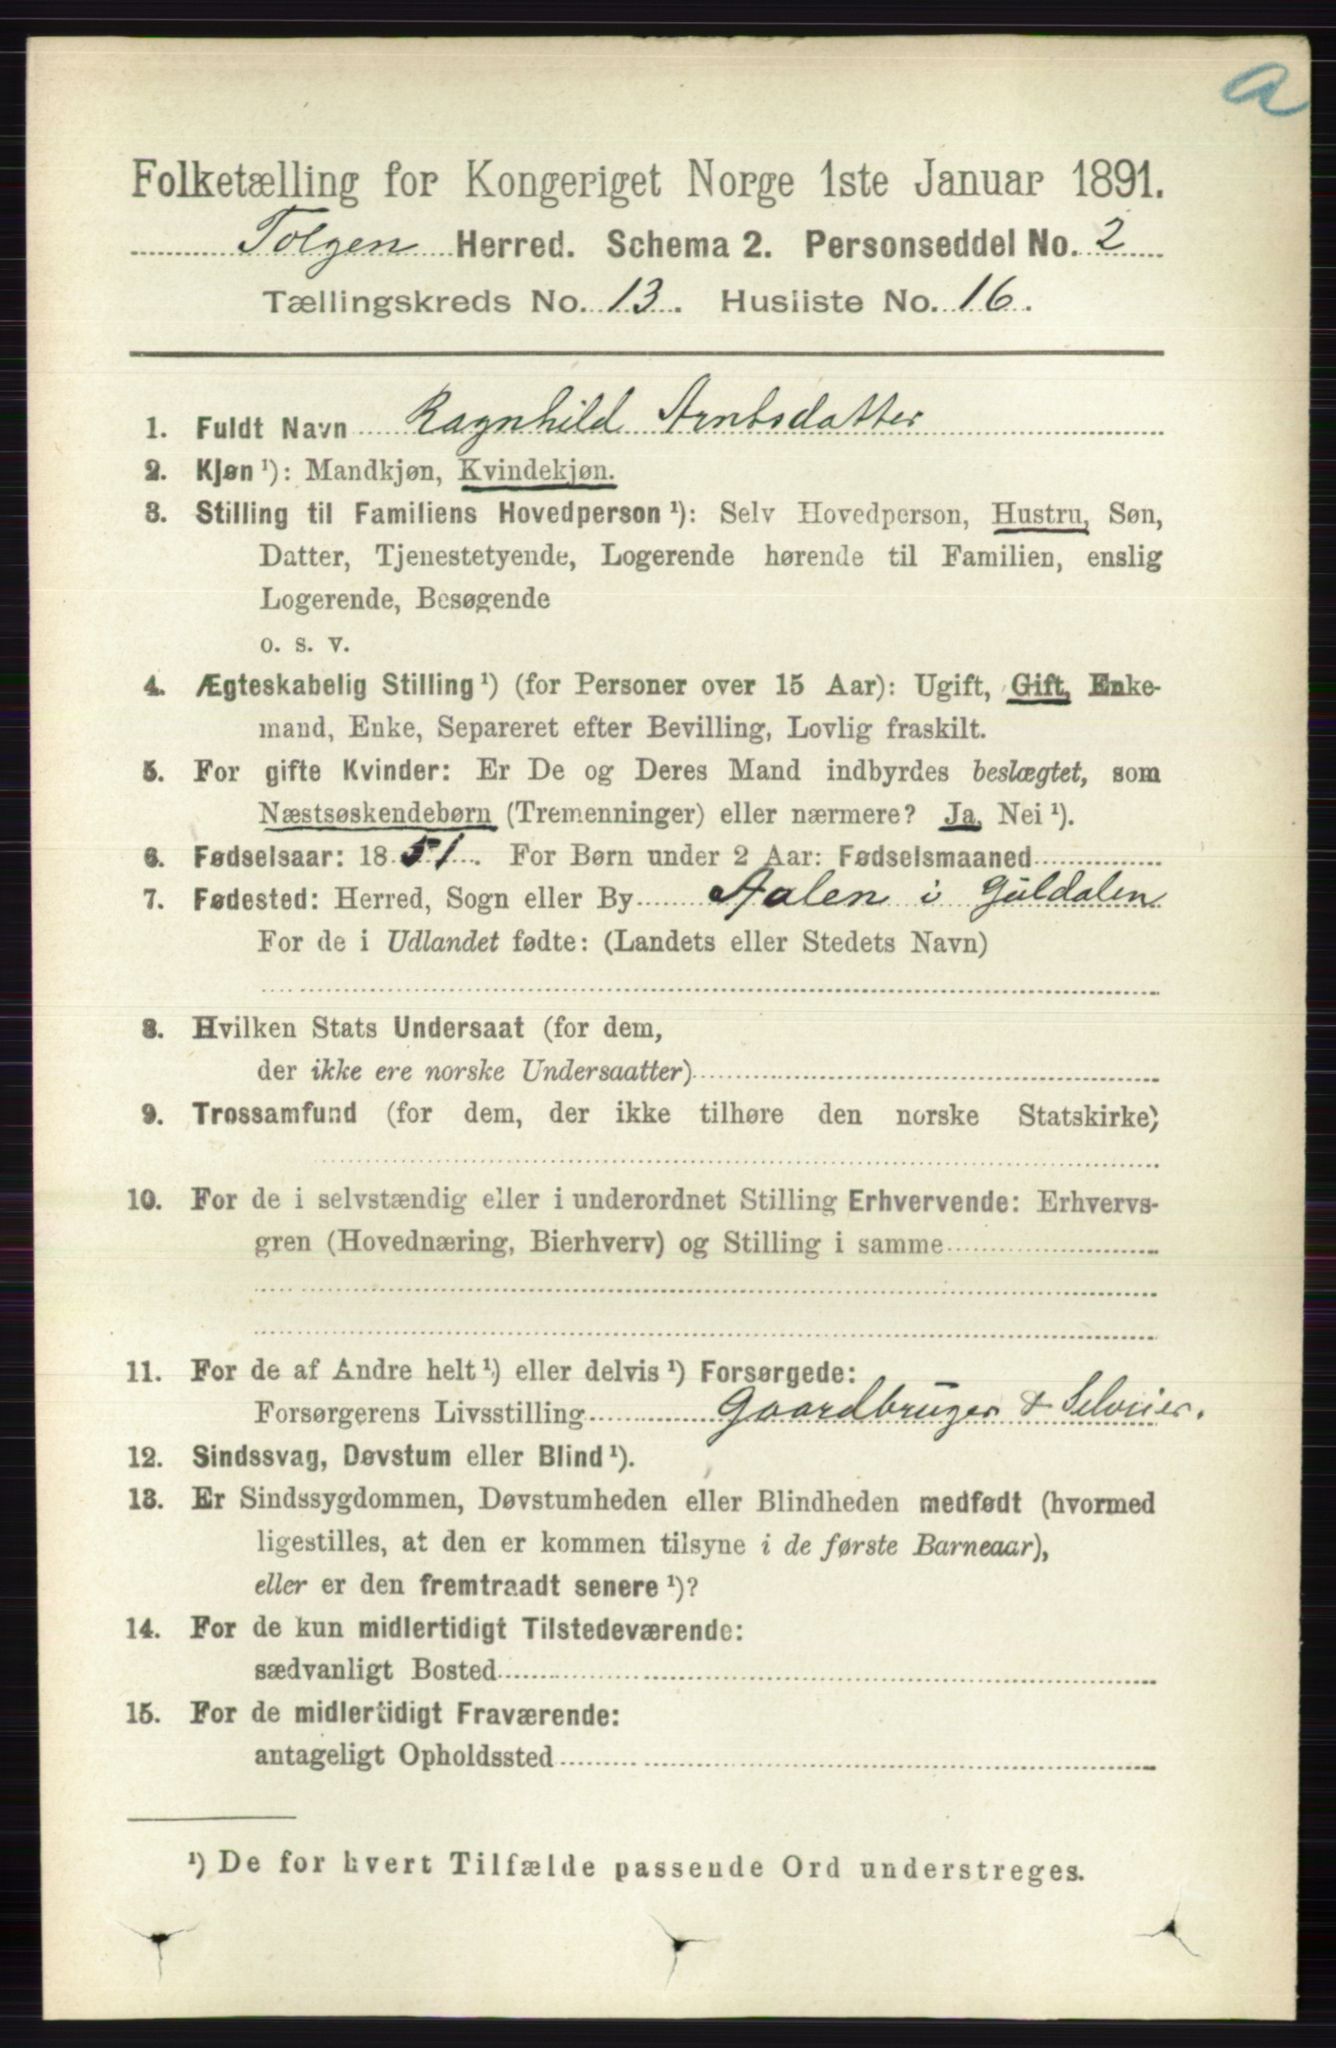 a
Folketælling for Kongeriget Norge 1ste Januar 1891.
Tolgen Herred. Schema 2. Personseddel No. 2
Tællingskreds No. 13. Husliste No. 16.
1. Fuldt Navn Ragnhild Arntsdatter
2. Kjøn ¹): Mandkjøn, Kvindekjøn.
3. Stilling til Familiens Hovedperson ¹): Selv Hovedperson, Hustru, Søn,
Datter, Tjenestetyende, Logerende hørende til Familien, enslig
Logerende, Besøgende
o. s. v.
4. Ægteskabelig Stilling ¹) (for Personer over 15 Aar): Ugift, Gift, Enke-
mand, Enke, Separeret efter Bevilling, Lovlig fraskilt.
5. For gifte Kvinder: Er De og Deres Mand indbyrdes beslægtet, som
Næstsøskendebørn (Tremenninger) eller nærmere? Ja, Nei ¹).
6. Fødselsaar: 1851. For Børn under 2 Aar: Fødselsmaaned
7. Fødested: Herred, Sogn eller By Aalen i Guldalen
For de i Udlandet fødte: (Landets eller Stedets Navn)
8. Hvilken Stats Undersaat (for dem,
der ikke ere norske Undersaatter)
9. Trossamfund (for dem, der ikke tilhøre den norske Statskirke)
10. For de i selvstændig eller i underordnet Stilling Erhvervende: Erhvervs-
gren (Hovednæring, Bierhverv) og Stilling i samme
11. For de af Andre helt ¹) eller delvis ¹) Forsørgede:
Forsørgerens Livsstilling Gaardbruger & Selveier.
12. Sindssvag, Døvstum eller Blind ¹).
13. Er Sindssygdommen, Døvstumheden eller Blindheden medfødt (hvormed
ligestilles, at den er kommen tilsyne i de første Barneaar),
eller er den fremtraadt senere ¹)?
14. For de kun midlertidigt Tilstedeværende:
sædvanligt Bosted
15. For de midlertidigt Fraværende:
antageligt Opholdssted
¹) De for hvert Tilfælde passende Ord understreges.